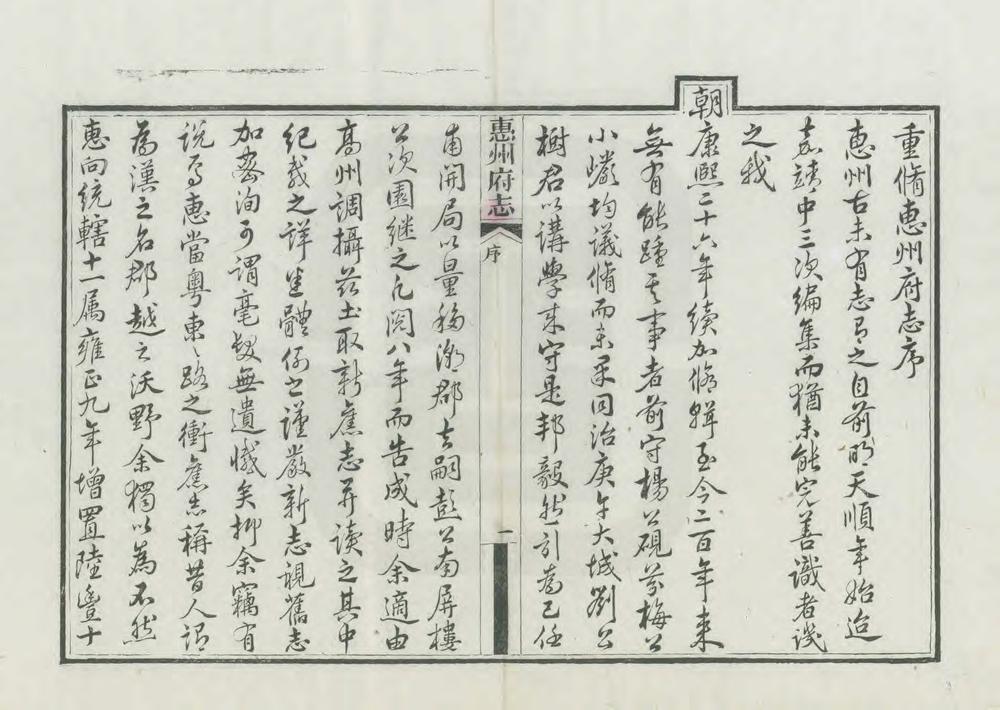 重脩惠州府志序
惠州古未有志有之自前明天順年始迨
嘉靖中三次編集而猶未能完善識者譏
之我
朝康熙二十六年續加脩輯至今二百年來
無有能踵其事者前守楊公硯芬梅公
小巗均議脩而未果同治庚午大城劉公
樹君以講學來守是邦毅然引為己任
惠州府志
序
一
甫開局以量移潮郡去嗣彭公南屏樓
公次園繼之凡閱八年而告成時余適由
高州調攝茲土取新舊志并讀之其中
紀載之詳坐體例之謹嚴新志視舊志
加密洵可謂毫髮無遺憾矣抑余竊有
說焉惠當粵東東路之衝舊志稱昔人謂
為漢之名郡越之沃野余獨以為不然
惠向統轄十一属雍正九年增置陸豐十